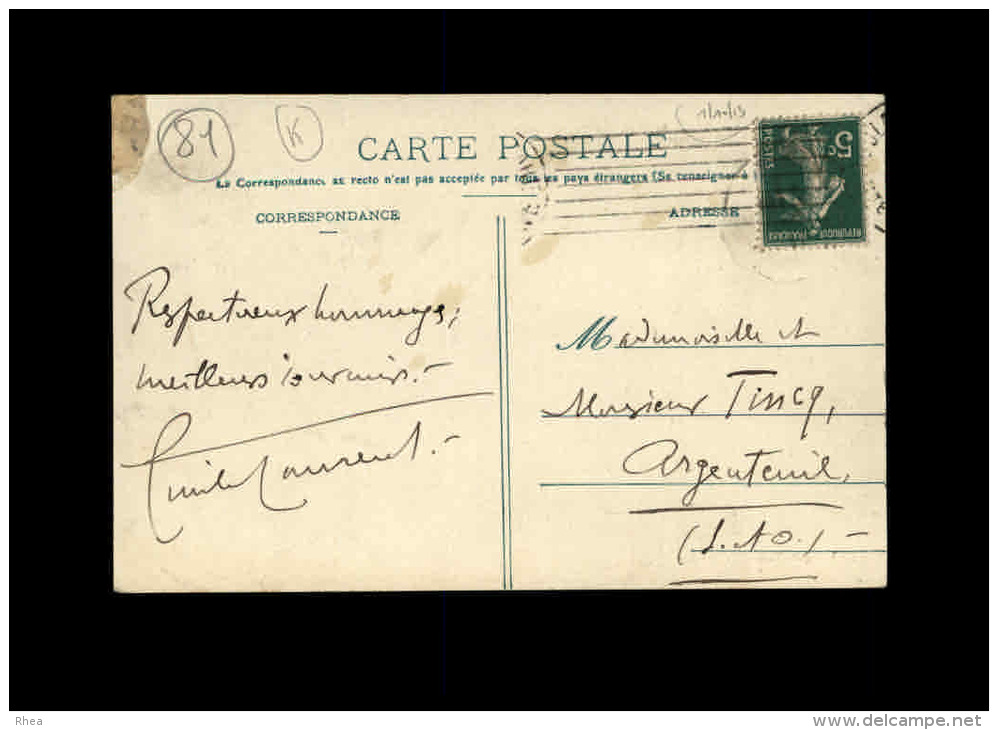 81
K
1/10/13
CARTE POSTALE
La Correspondance au recto n'est pas acceptée par tous les pays étrangers (Se renseigner à
CORRESPONDANCE
ADRESSE
5c
POSTES
REPUBLIQUE FRANÇAISE
Respectueux hommages,
meilleurs souvenirs.-
Emile Laurent.-
Mademoiselle et
Monsieur Tincq,
Argenteuil,
(S.&O.).-
Rhea
www.delcampe.net